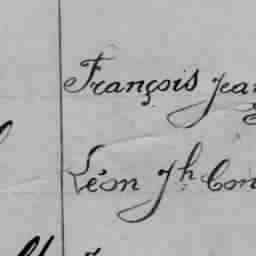 François Jean
Léon Jh Con